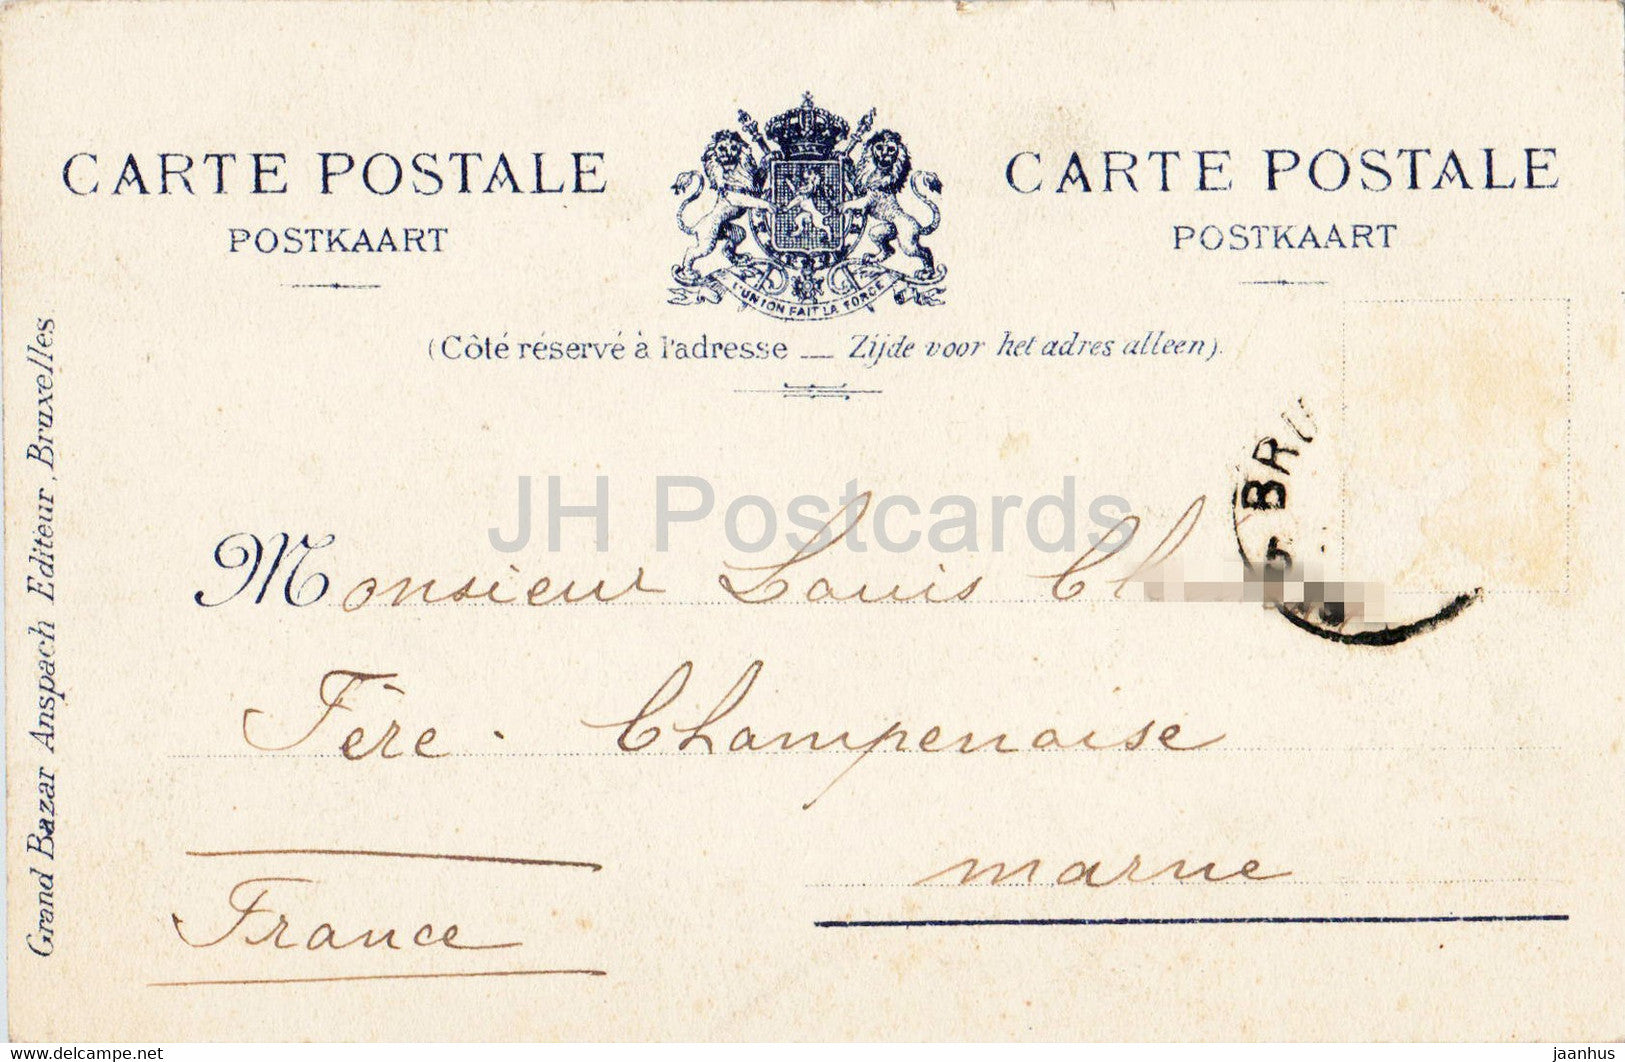 CARTE POSTALE
POSTKAART
L'UNION FAIT LA FORCE
CARTE POSTALE
POSTKAART
(Côté réservé à l'adresse __ Zijde voor het adres alleen).
Grand Bazar Anspach Editeur, Bruxelles
BRU
5
JH Postcards
Monsieur Louis
Fère - Champenoise
Marne
France
www.delcampe.net
jaanhus